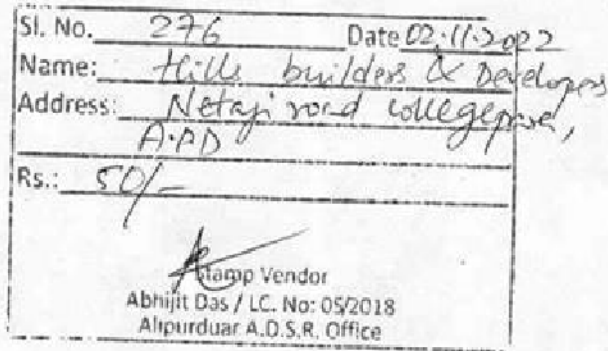 Sl. No. 276 Date 02.11.2022
Name: Hills builders & Developers
Address: Netaji road collegepara,
A.P.D
Rs.: 50/-
Stamp Vendor
Abhijit Das / LC. No: 05/2018
Alipurduar A.D.S.R. Office